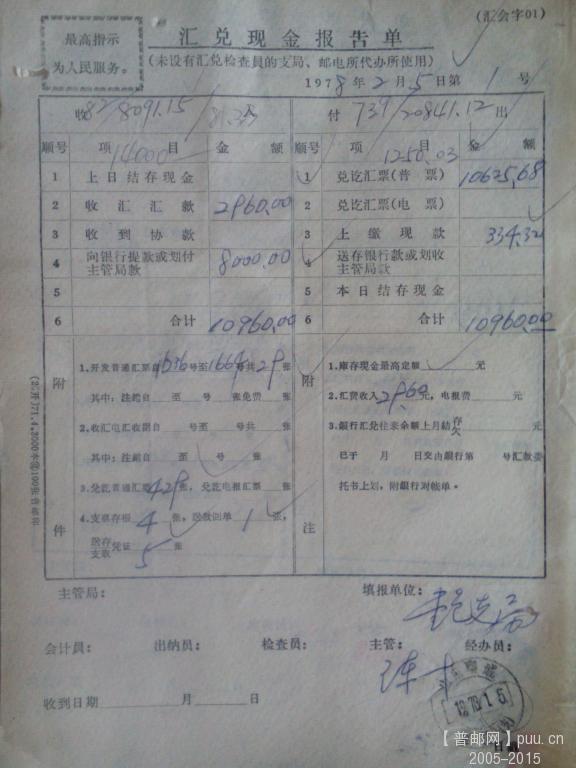 (汇会字01)
最高指示
为人民服务。
汇兑现金报告单
(未设有汇兑检查員的支局、邮电所代办所使用)
1978年2月5日第1号
收82/8091.15 付739/20841.12出
14000 1250.03
順号 项目 金额 順号 项目 金额
1 上日结存现金 1 兑讫汇票(普票) 10625.68
2 收汇汇款 2960.00 2 兑讫汇票(电票)
3 收到协款 3 上缴现款 334.32
4 向银行提款或划付主管局款 8000.00 4 送存银行款或划收主管局款
5 5 本日结存现金
6 合计 10960.00 6 合计 10960.00
附件
1.开发普通汇票 1636号至1664号共29张
其中:注銷自 至 号 张免费 张
2.收汇电汇收据自 号至 号共 张
其中:注銷自 至 号 张
3.兑讫普通汇票429张,兑讫电报汇票 张
4.支票存根4张,送款回单1张,
送存支取凭证5张
附注
1.库存现金最高定额 元
2.汇费收入29.60元,电报费 元
3.銀行汇兑往来余额上月結存欠 元
已于 月 日交由銀行第 号汇款委
托书上划,附銀行对帐单。
主管局: 填报单位: 支局
会计員: 出纳员: 检查員: 主管: 经办员:
收到日期 年 月 日
【普邮网】puu.cn
2005-2015